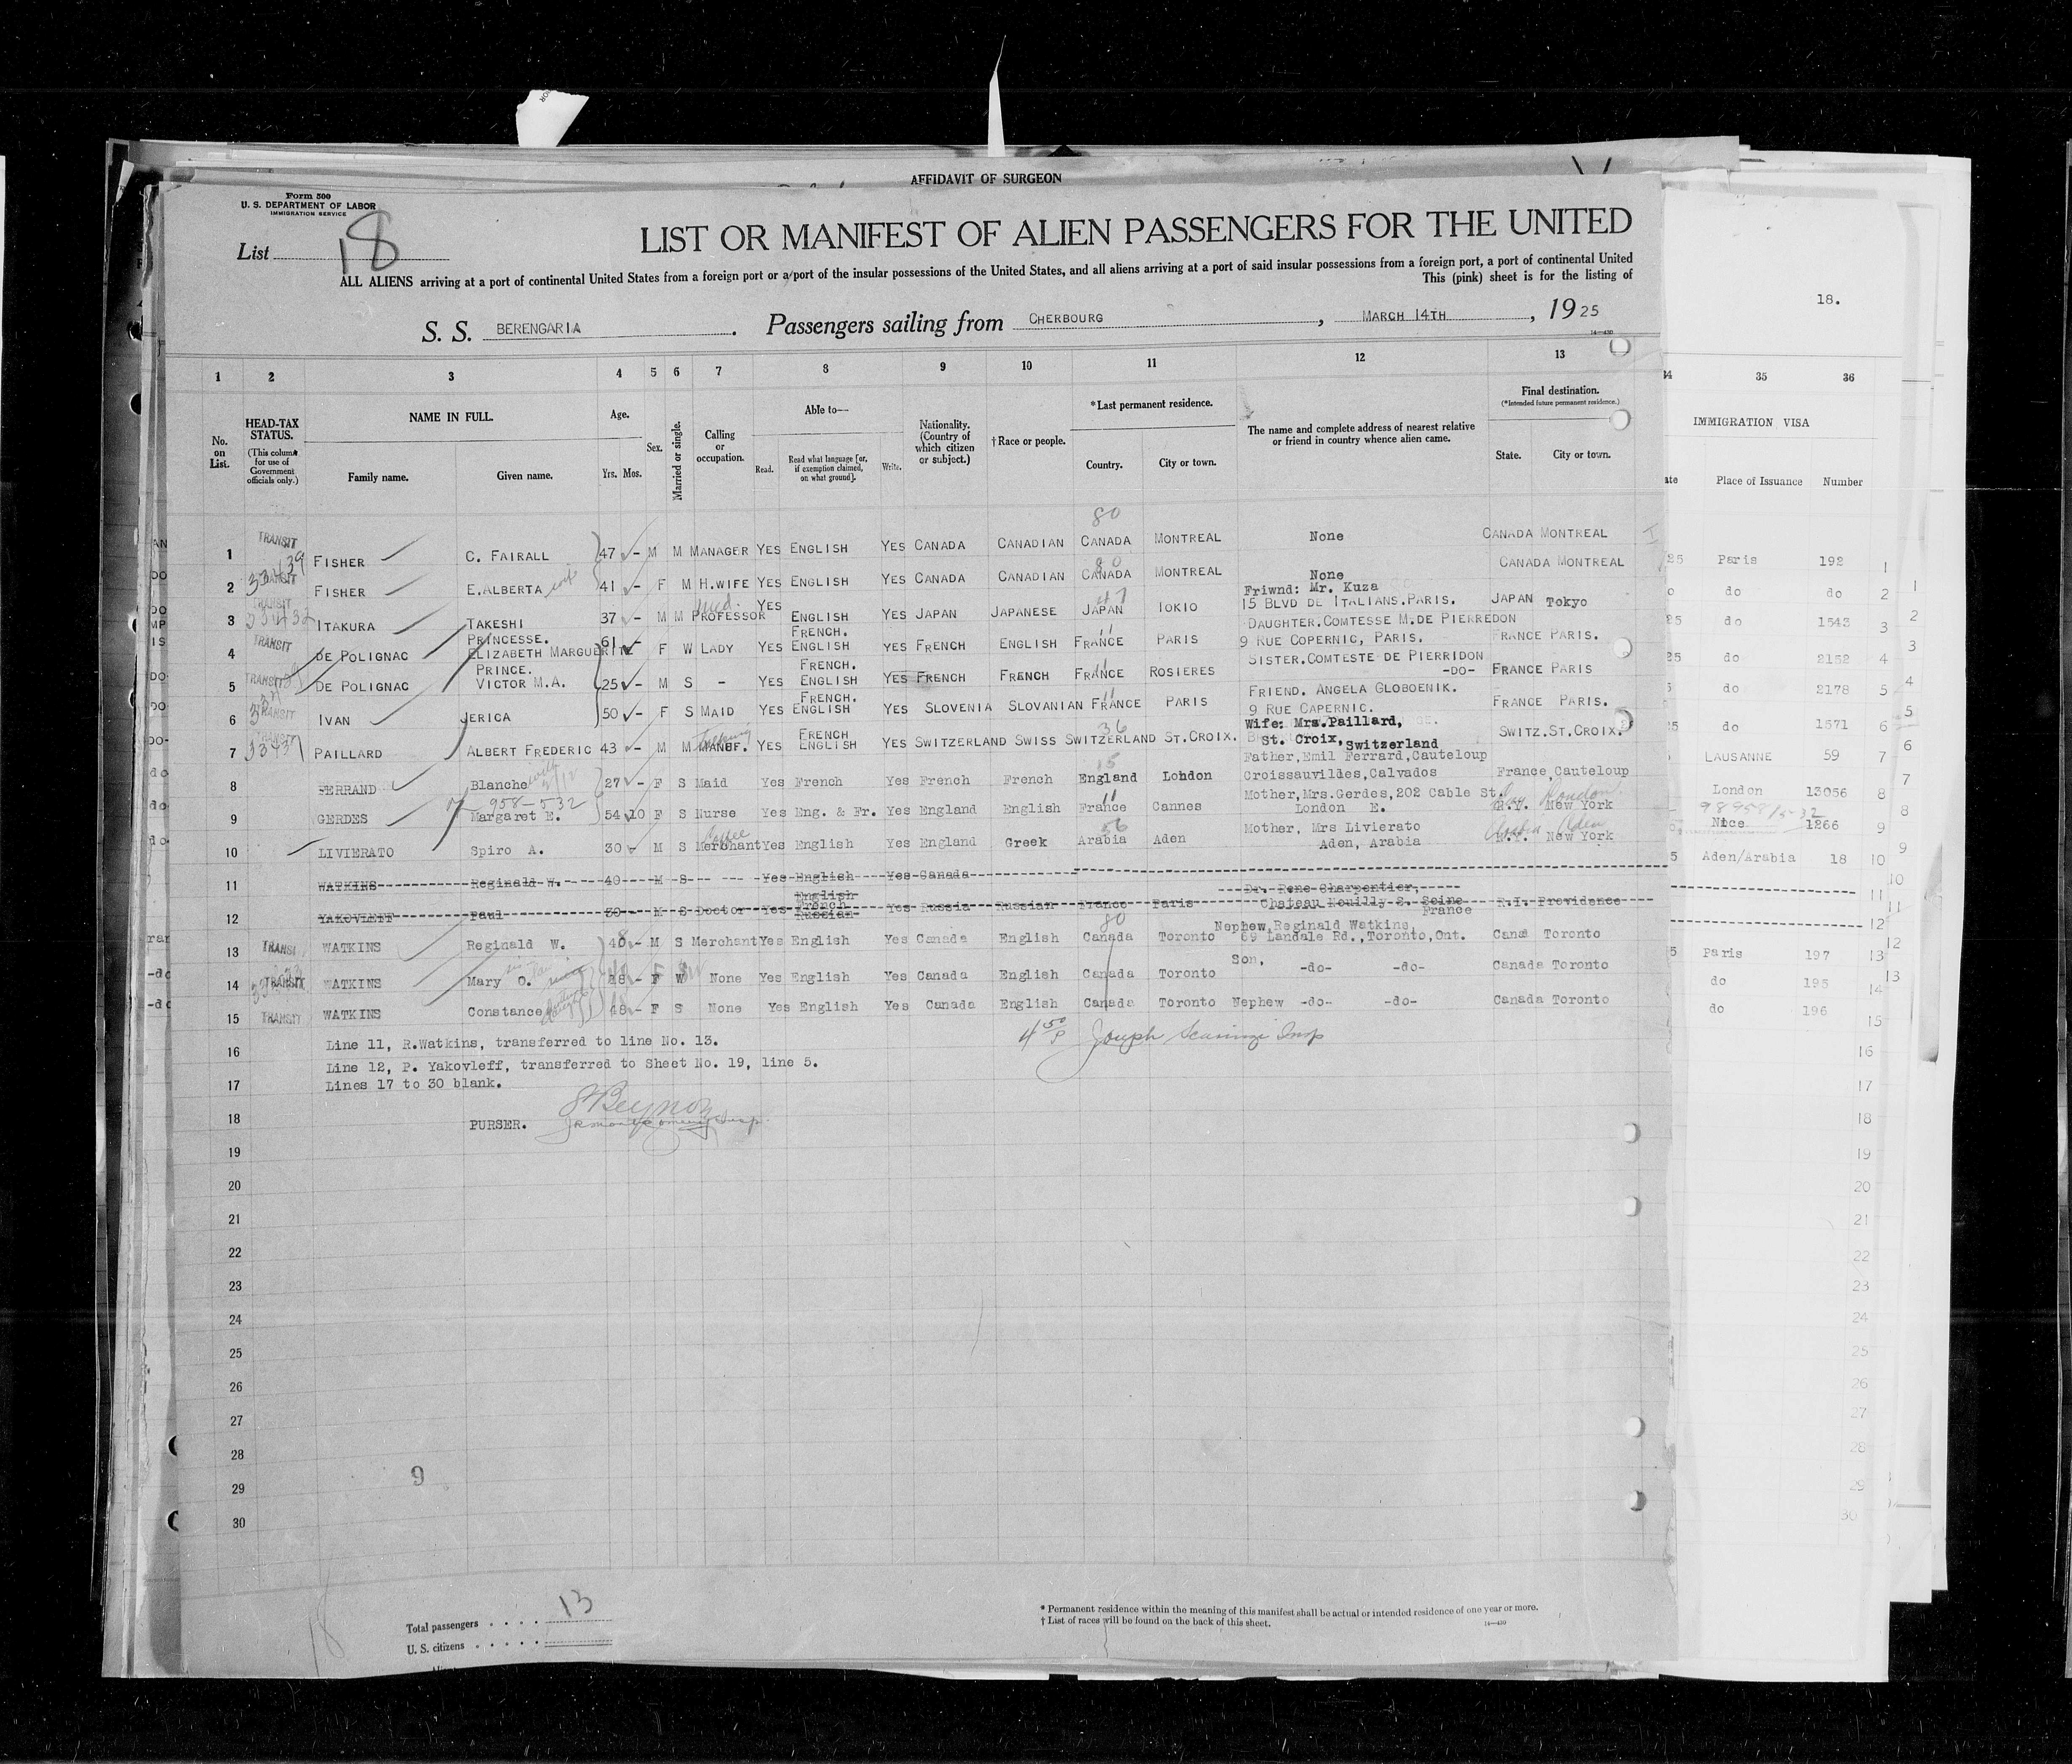 AFFIDAVIT OF SURGEON
Form 500
U. S. DEPARTMENT OF LABOR
IMMIGRATION SERVICE
List 18
LIST OR MANIFEST OF ALIEN PASSENGERS FOR THE UNITED
ALL ALIENS arriving at a port of continental United States from a foreign port or a port of the insular possessions of the United States, and all aliens arriving at a port of said insular possessions from a foreign port, a port of continental United
This (pink) sheet is for the listing of
18.
S. S. BERENGARIA . Passengers sailing from CHERBOURG , MARCH 14TH , 1925
14—430
1 2 3 4 5 6 7 8 9 10 11 12 13 34 35 36
No. on List.
HEAD-TAX STATUS.
(This column for use of Government officials only.)
NAME IN FULL.
Family name. Given name.
Age.
Yrs. Mos.
Sex.
Married or single.
Calling or occupation.
Able to—
Read. Read what language [or, if exemption claimed, on what ground]. Write.
Nationality. (Country of which citizen or subject.)
†Race or people.
*Last permanent residence.
Country. City or town.
The name and complete address of nearest relative or friend in country whence alien came.
Final destination.
(*Intended future permanent residence.)
State. City or town.
IMMIGRATION VISA
Place of Issuance Number
80
1 TRANSIT FISHER C. FAIRALL 47 M M MANAGER YES ENGLISH YES CANADA CANADIAN CANADA MONTREAL None CANADA MONTREAL Paris 192 1
33439
80
2 TRANSIT FISHER E.ALBERTA wife 41 - F M H.WIFE YES ENGLISH YES CANADA CANADIAN CANADA MONTREAL None CANADA MONTREAL do do 2
Friwnd: Mr. Kuza
3 TRANSIT 33432 ITAKURA TAKESHI 37 - M M Med. PROFESSOR YES ENGLISH YES JAPAN JAPANESE 47 JAPAN TOKIO 15 BLVD DE ITALIANS.PARIS. JAPAN Tokyo do 1543 3
DAUGHTER.COMTESSE M.DE PIERREDON
PRINCESSE. FRENCH. 11
4 TRANSIT DE POLIGNAC ELIZABETH MARGUERITE 61 - F W LADY YES ENGLISH YES FRENCH ENGLISH FRANCE PARIS 9 RUE COPERNIC, PARIS. FRANCE PARIS. do 2152 4
SISTER.COMTESTE DE PIERRIDON
PRINCE. FRENCH. 11
5 TRANSIT DE POLIGNAC VICTOR M.A. 25 - M S - YES ENGLISH YES FRENCH FRENCH FRANCE ROSIERES -DO- FRANCE PARIS do 2178 5
FRENCH. 11 FRIEND. ANGELA GLOBOENIK.
6 TRANSIT IVAN JERICA 50 - F S MAID YES ENGLISH YES SLOVENIA SLOVANIAN FRANCE PARIS 9 RUE CAPERNIC. FRANCE PARIS. do 1571 6
FRENCH 36 Wife: Mrs.Paillard,
7 33437 PAILLARD ALBERT FREDERIC 43 - M M MANUF. YES ENGLISH YES SWITZERLAND SWISS SWITZERLAND ST.CROIX. St. Croix, Switzerland SWITZ.ST.CROIX. LAUSANNE 59 7
Father,Emil Ferrard,Cauteloup
8 FERRAND Blanche 27 - F S Maid Yes French Yes French French 15 England London Croissauvildes,Calvados France,Cauteloup London 13056 8
958-532
11 Mother,Mrs.Gerdes,202 Cable St.
9 GERDES Margaret E. 54 10 F S Nurse Yes Eng. & Fr. Yes England English France Cannes London E. N.Y. New York Nice 1266 9
Coffee 56 Mother, Mrs Livierato
10 LIVIERATO Spiro A. 30 M S Merchant Yes English Yes England Greek Arabia Aden Aden, Arabia N.Y. New York Aden/Arabia 18 10
11 WATKINS Reginald W. 40 M S Yes English Yes Canada 11
English Dr. Rene Charpentier,
French
12 YAKOVLEFF Paul 30 - M S Doctor Yes Russian Yes Russia Russian France Paris Chateau Nouilly S. Seine France R.I. Providence 12
80 Nephew,Reginald Watkins,
13 TRANSIT WATKINS Reginald W. 48 - M S Merchant Yes English Yes Canada English Canada Toronto 69 Landale Rd.,Toronto,Ont. Cana Toronto Paris 197 13
Son.
14 TRANSIT WATKINS Mary O. 48 - F W None Yes English Yes Canada English Canada Toronto -do- -do- Canada Toronto do 195 14
15 TRANSIT WATKINS Constance 48 - F S None Yes English Yes Canada English Canada Toronto Nephew -do- -do- Canada Toronto do 196 15
16 Line 11, R.Watkins, transferred to line No. 13. 16
Line 12, P. Yakovleff, transferred to Sheet No. 19, line 5.
17 Lines 17 to 30 blank. 17
18 PURSER. 18
19 19
20 20
21 21
22 22
23 23
24 24
25 25
26 26
27 27
28 28
29 9 29
30 30
Total passengers . . . . 13
U. S. citizens . . . . .
18
* Permanent residence within the meaning of this manifest shall be actual or intended residence of one year or more.
† List of races will be found on the back of this sheet.
14—430